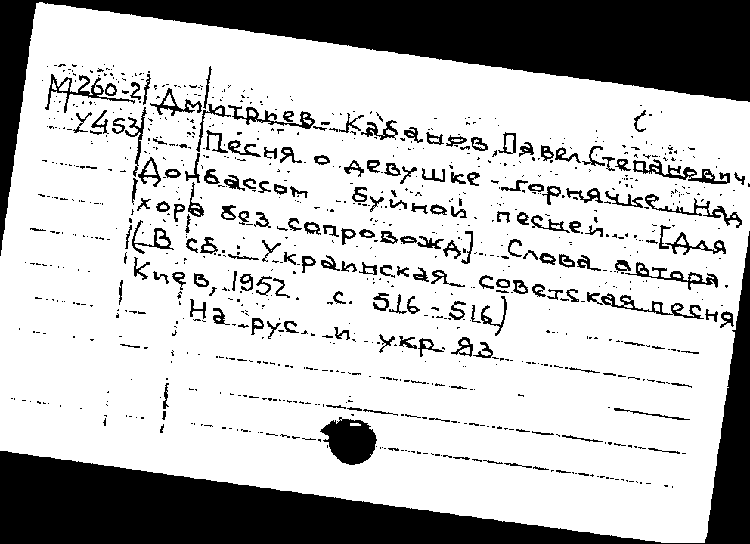 М260-2
У453
Дмитриев-Кабанов, Павел Степанович.
Песня о девушке-горнячке. Над
Донбассом буйной песней.... [Для
хора без сопровожд.] Слова автора.
(В сб.: Украинская советская песня
Киев, 1952. с. 516-516)
На рус. и укр. яз